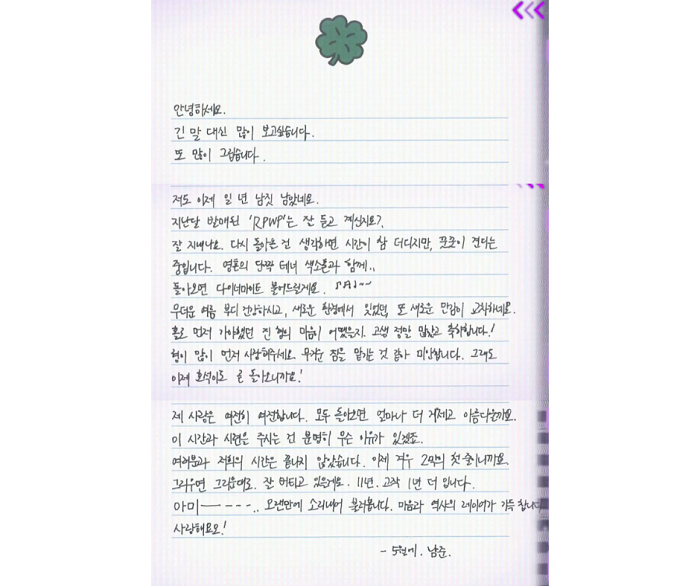 안녕하세요.
긴 말 대신 많이 보고싶습니다.
또 많이 그립습니다.
저도 이제 일 년 남짓 남았네요.
지난달 발매된 'RPWP'는 잘 듣고 계신지요?
잘 지내나요. 다시 돌아올 건 생각하면 시간이 참 더디지만, 꿋꿋이 견디는
중입니다. 영혼의 단짝 테너 색소폰과 함께..
돌아오면 다이너마이트 불어드릴게요. ♪♬♩~~
무더운 여름 부디 건강하시고, 새로운 환경에서 있었던, 또 새로운 만감이 교차하네요.
홀로 먼저 가야했던 진 형의 마음이 어땠을지. 고생 정말 많았고 축하합니다!
형이 많이 먼저 사랑해주세요. 무거운 짐을 맡기는 것 같아 미안합니다. 그래도
이제 호석이도 곧 돌아오니까요!
제 사랑은 여전히 여전합니다. 모두 돌아오면 얼마나 더 거세고 아름다운까요.
이 시간과 시련을 주시는 건 분명히 무슨 이유가 있겠죠.
여러분과 저희의 시간은 끝나지 않았습니다. 이제 겨우 2막의 첫 줄이니까요.
그리우면 그리운대로. 잘 버티고 있을게요. 11년. 고작 1년 더 입니다.
아미――---.. 오랜만에 소리내어 불러봅니다. 마음과 역사의 레이어가 가득 합니다
사랑해요오!
- 5월에, 남준.